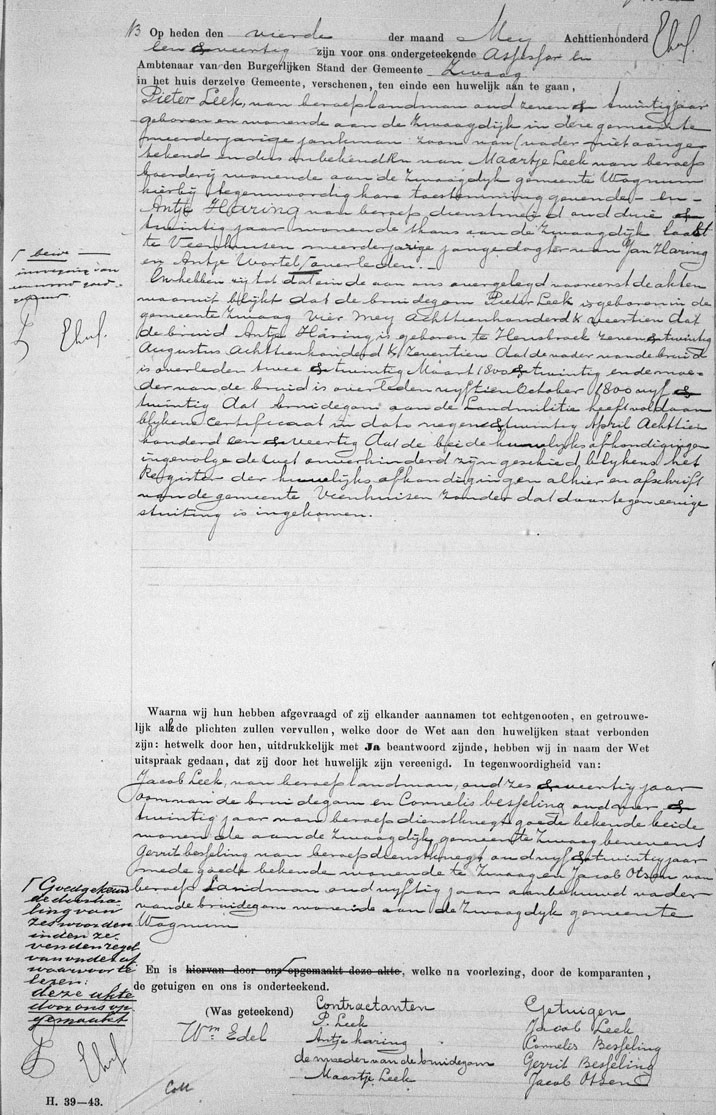 N3 Op heden den vierde der maand Mey Achttienhonderd
een & veertig zijn voor ons ondergeteekende Assessor en
Ambtenaar van den Burgerlijken Stand der Gemeente Zwaag
in het huis derzelve Gemeente, verschenen, ten einde een huwelijk aan te gaan,
Pieter Leek, van beroep landman oud zeven & twintig jaar
geboren en wonende aan de Zwaagdijk in deze gemeente
meerderjarige jonkman zoon van (vader niet aange-
tekend en dus onbekend) en van Maartje Leek van beroep
boerderij wonende aan de Zwaagdijk gemeente Wognum
hierbij tegenwoordig hare toestemming gevende - en -
Antje Haring van beroep dienstmeid oud drie &
twintig jaar wonende thans aan de Zwaagdijk laatst
te Veenhuisen meerderjarige jongedogter van Jan Haring
en Antje Wortel overleden.
En hebben zij tot dat einde aan ons overgelegd vooreerst de akten
waaruit blijkt dat de bruidegom Pieter Leek is geboren in de
gemeente Zwaag vier mey achttienhonderd & veertien dat
de bruid Antje Haring is geboren te Hensbroek zeven & twintig
Augustus achttienhonderd & zeventien dat de vader van de bruid
is overleden twee & twintig Maart 1800 & twintig en de moe-
der van de bruid is overleden vyftien October 1800 vyf &
twintig dat bruidegom aan de Landmilitie heeft voldaan
blykens certificaat in dato negen & twintig April Achttien
honderd een & veertig dat de beide huwelijks afkondigingen
ingevolge de wet onverhinderd zijn geschied blykens het
Register der huwelijks afkondigingen alhier en afschrift
van de gemeente Veenhuisen zonder dat daartegen eenige
stuiting is ingekomen.
Waarna wij hun hebben afgevraagd of zij elkander aannamen tot echtgenooten, en getrouwe-
lijk alle de plichten zullen vervullen, welke door de Wet aan den huwelijken staat verbonden
zijn: hetwelk door hen, uitdrukkelijk met Ja beantwoord zijnde, hebben wij in naam der Wet
uitspraak gedaan, dat zij door het huwelijk zijn vereenigd. In tegenwoordigheid van:
Jacob Leek, van beroep landman, oud zes & veertig jaar
oom van de bruidegom en Cornelis Besseling oud vier &
twintig jaar van beroep dienstknegt goede bekende beide
wonende aan de Zwaagdyk gemeente Zwaag benevens
Gerrit Besseling van beroep dienstknegt oud vyf & twintig jaar
mede goede bekende wonende te Zwaag en Jacob Otsen van
beroep Landman oud vyftig jaar aanbehuwd vader
van de bruidegom wonende aan de Zwaagdyk gemeente
Wognum
Goedgekeurd
de doorha-
ling van
zes woorden
in den ze-
venden regel
van onder af
waarvoor te
lezen:
deze akte
door ons op
gemaakt
En is hiervan door ons opgemaakt deze akte, welke na voorlezing, door de komparanten,
de getuigen en ons is onderteekend.
(Was geteekend) Contractanten Getuigen
Wm Edel P. Leek Jacob Leek
Antje haring Cornelis Besseling
de moeder van de bruidegom Gerrit Besseling
Maartje Leek Jacob Otsen
Coll
H. 39—43.